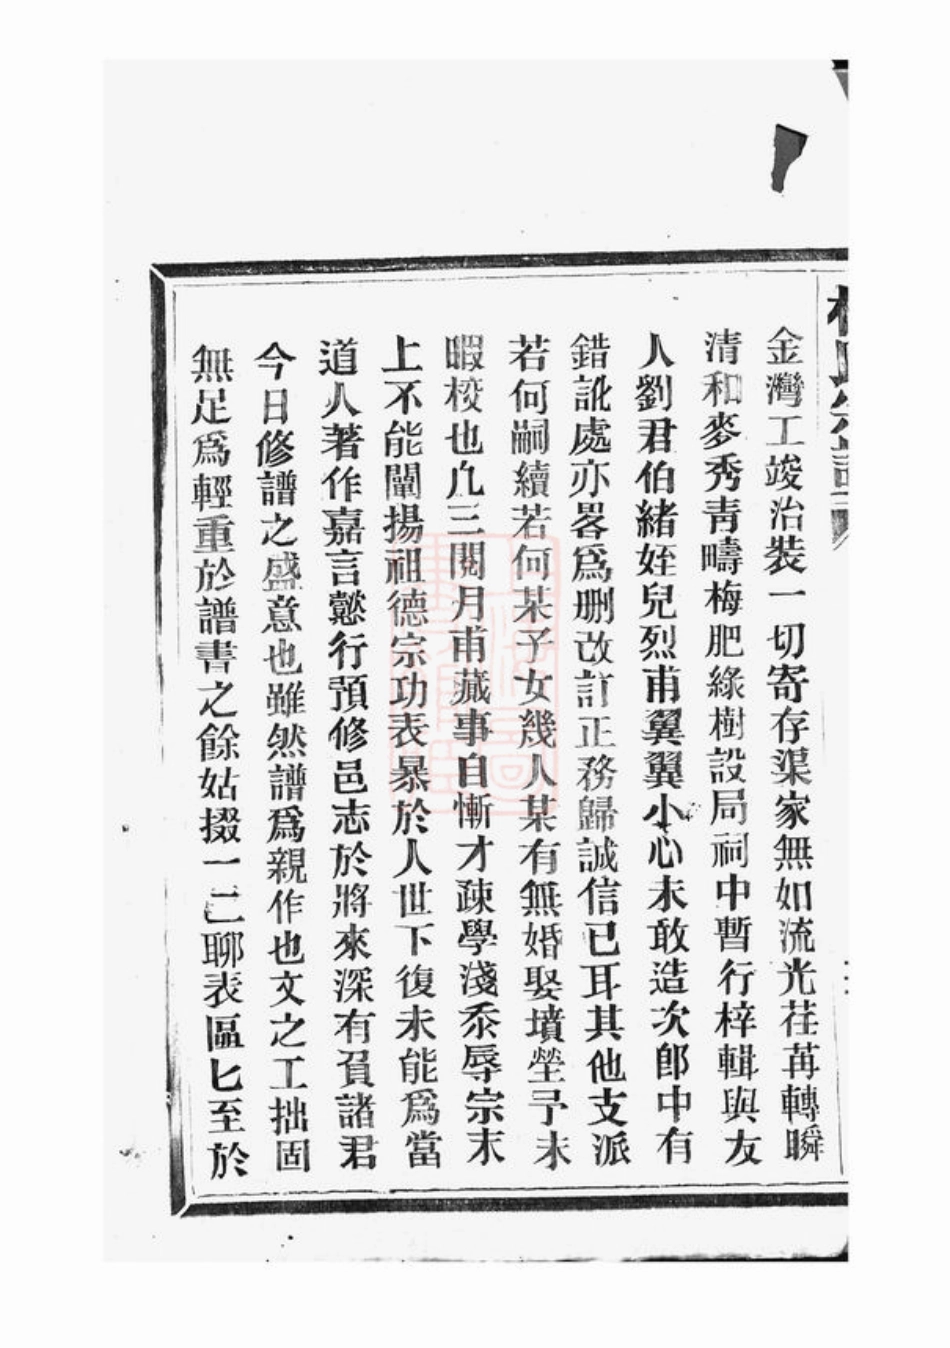 金灣工竣治裝一切寄存渠家無如流光荏苒轉瞬
清和麥秀青疇梅肥綠樹設局祠中暫行梓輯與友
人劉君伯緒姪兒烈甫翼翼小心未敢造次郎中有
錯訛處亦畧爲删改訂正務歸誠信已耳其他支派
若何嗣續若何某子女幾人某有無婚娶墳塋予未
暇校也凢三閱月甫蕆事自慚才疎學淺忝辱宗末
上不能闡揚祖德宗功表暴於人世下復未能爲當
道人著作嘉言懿行預修邑志於將來深有負諸君
今日修譜之盛意也雖然譜爲親作也文之工拙固
無足爲輕重於譜書之餘姑掇一二聊表區匕至於